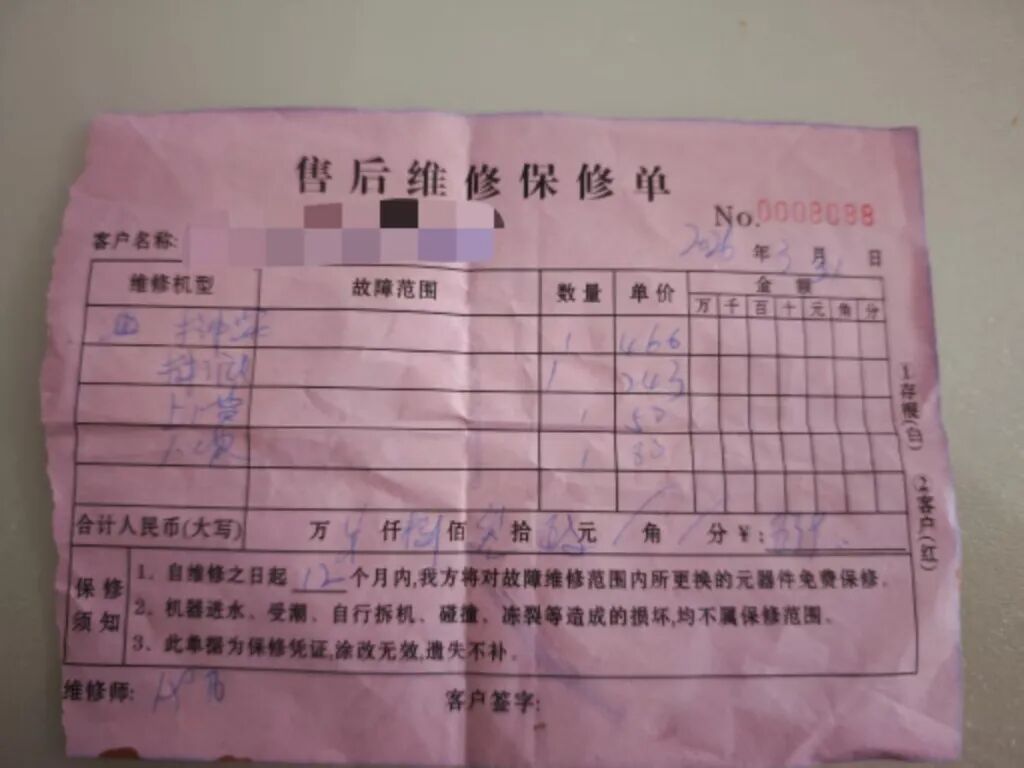 售后维修保修单
No.0008088
客户名称: 2026 年 3 月 31 日
维修机型 故障范围 数量 单价 金额
万 千 百 十 元 角 分
1 466
1 243
1 50
1 80
合计人民币(大写) 万 仟 佰 拾 元 角 分 ¥:
保修须知
1、自维修之日起 12 个月内,我方将对故障维修范围内所更换的元器件免费保修。
2、机器进水、受潮、自行拆机、碰撞、冻裂等造成的损坏,均不属保修范围。
3、此单据为保修凭证,涂改无效,遗失不补。
维修师: 客户签字:
1.存根(白)
2.客户(红)